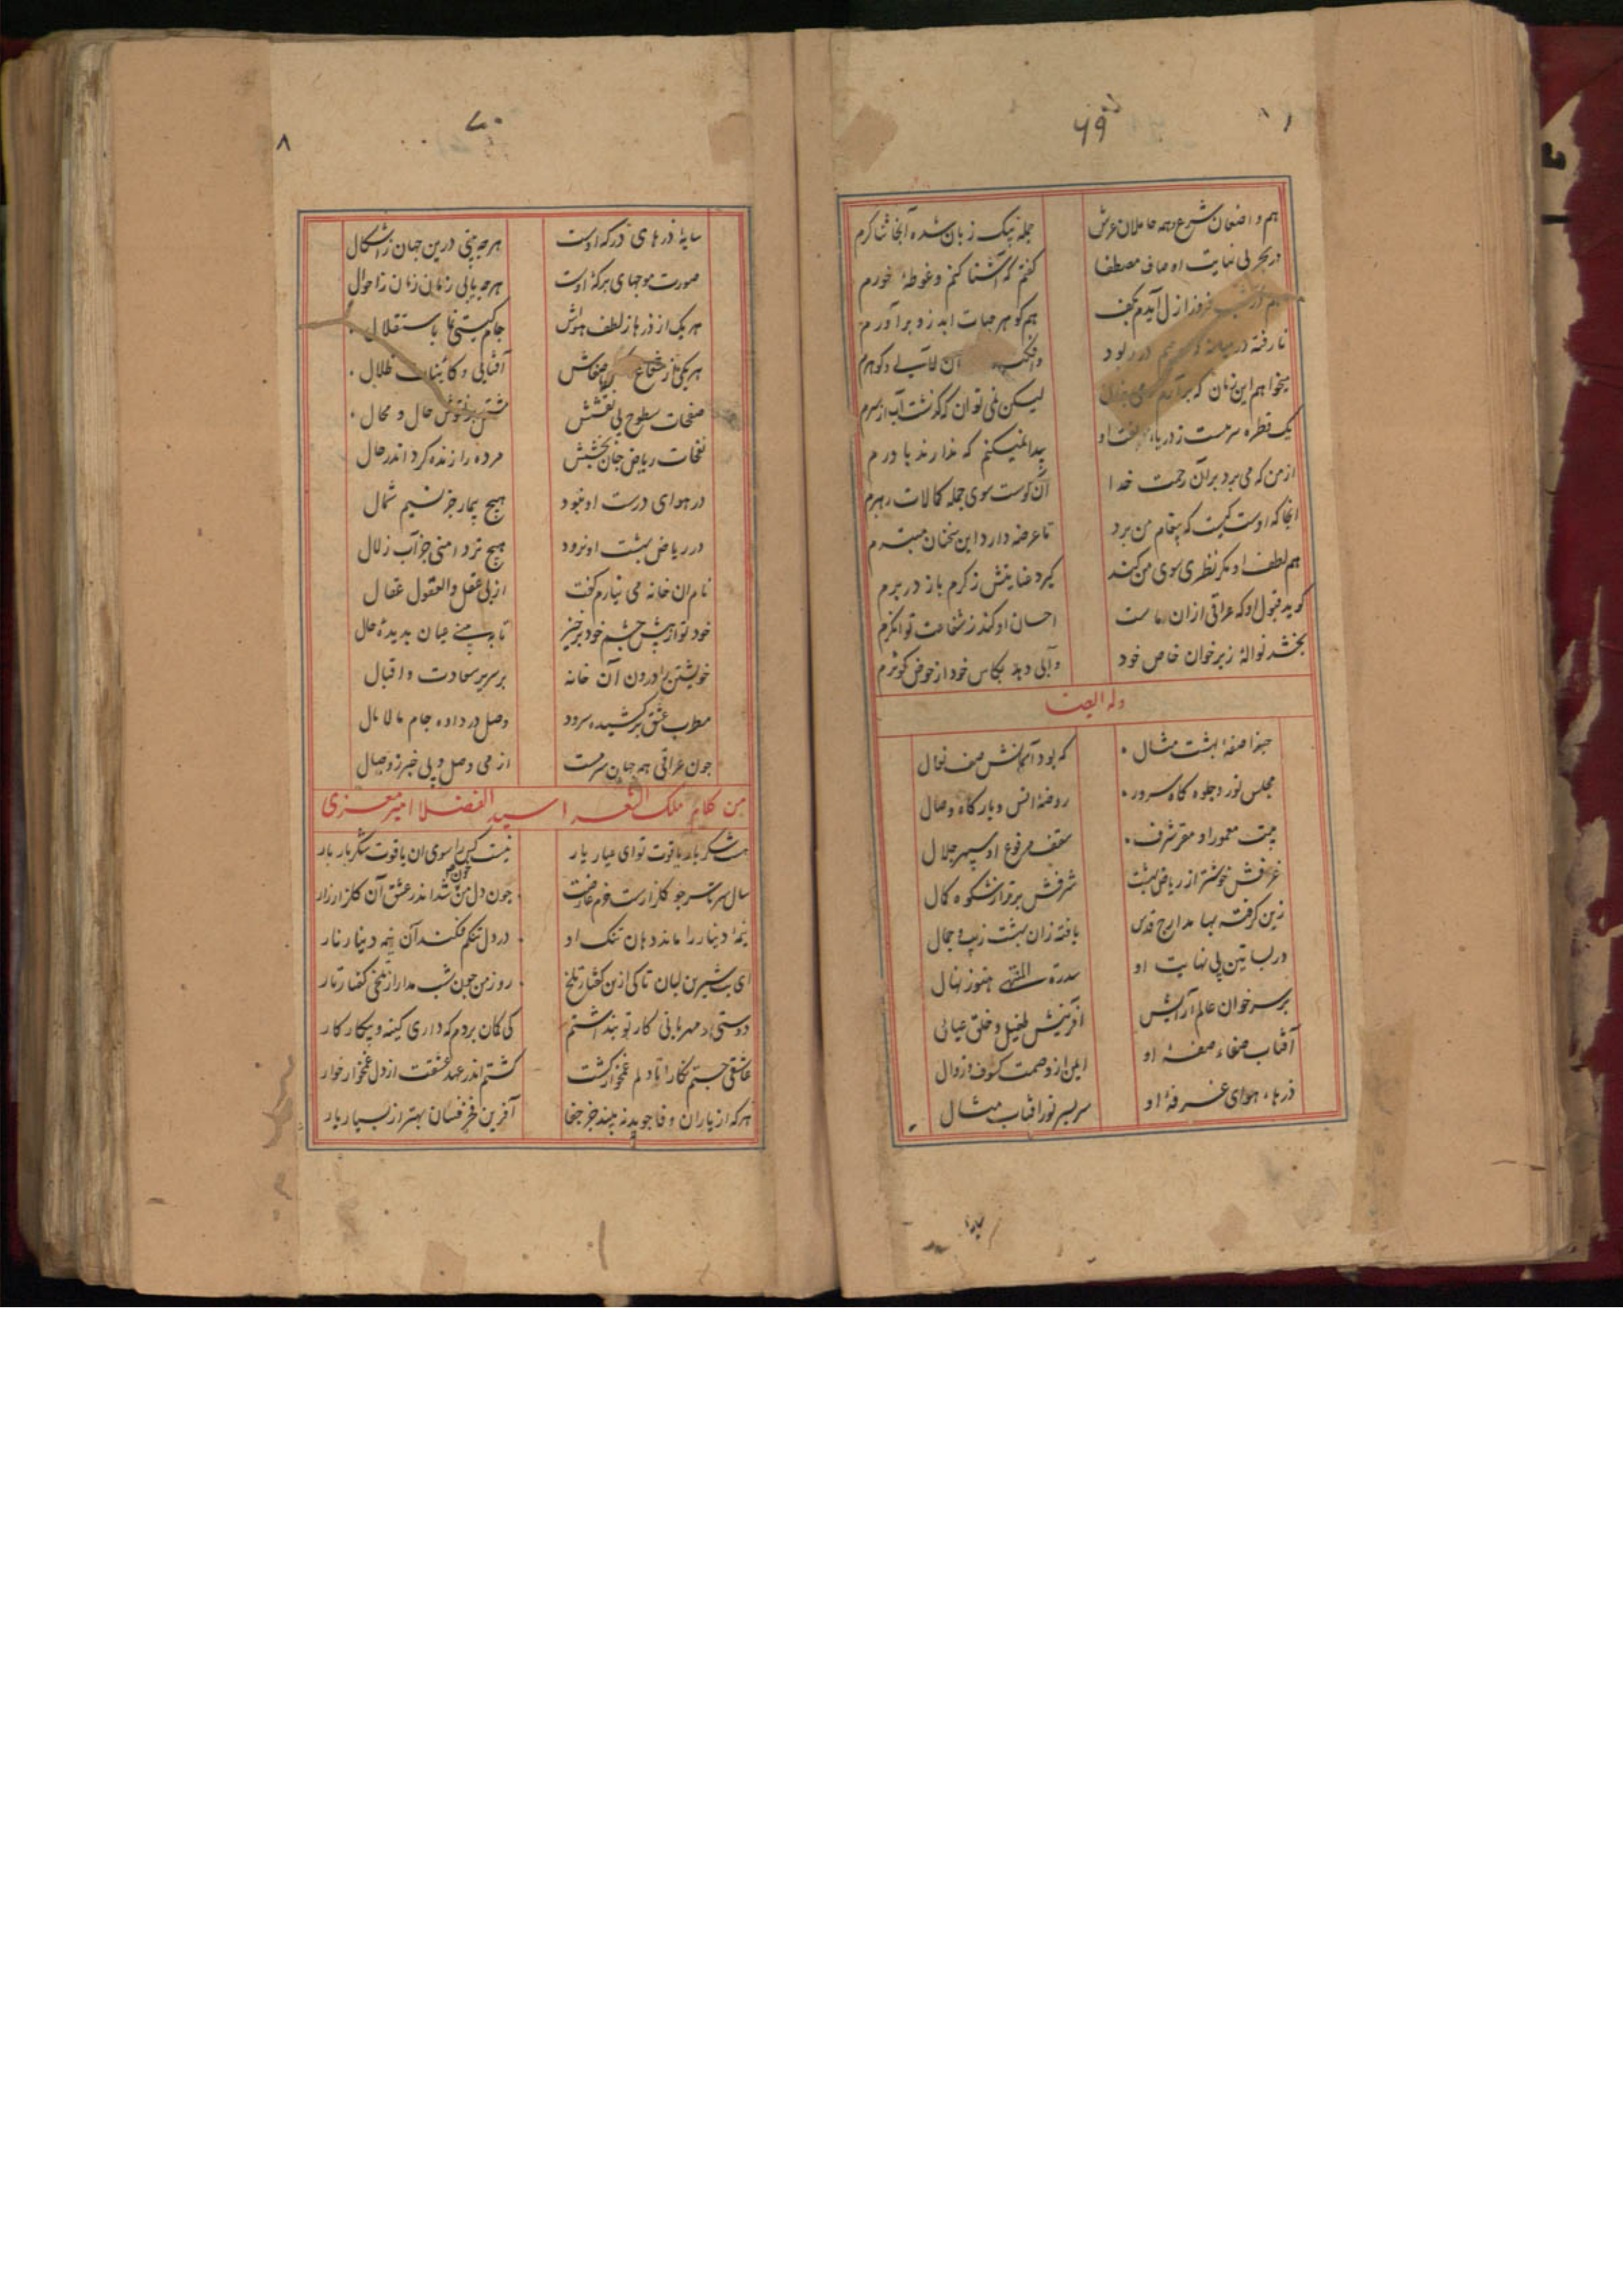 ۶۹
هم واضعان شرع و همه حاملان عرش جمله بیک زبان شده آنجا ثناگرم
در بحر بی نهایت اوصاف مصطفا گفتم که آشنا کنم و غوطهٔ خورم
شب فروز ازل آیدم بکف هم گوهر حیات ابد زو برآورم
نارفته در میانه که در ربود آن لآلی و گوهرم
میخواهم این زمان که لیکن نمی توان که گذشت آب از سرم
یک قطره سرمست ز دریا او پیدا نمیکنم که ندارند باورم
از من که می برد بر آن رحمت خدا آن کوست سوی جمله کمالات رهبرم
انجا که اوست کیست که پیغام من برد تا عرضه دارد این سخنان مبترم
هم لطف او مگر نظری سوی من کند گیرد عنایتش ز کرم باز در برم
گوید قبول او که عراقی از ان ماست احسان او کند ز شفاعت توانگرم
بخشد نوالهٔ ز سر خوان خاص خود و آبی دهد بکاس خود از حوض کوثرم
وله ایضا
حبذا صفهٔ بهشت مثال که بود آسمانش صف نعال
مجلس نور و جلوه کاه سرور روضهٔ انس و بارکاه وصال
بیت معمور او مقر شرف سقف مرفوع او سپهر جلال
غرفش خوشتر از ریاض بهشت شرفش برتر از شکوه کمال
زین گرفته بها مدارج قدس یافته زان بهشت زیب و جمال
در بساتین بی نهایت او سدرة المنتهی هنوز نهال
بر سر خوان عالم آرایش آفرینش طفیل و خلق عیالی
آفتاب صفاء صفهٔ او ایمن از وصمت کسوف و زوال
ذرهاء هوای غرفهٔ او سربسر نور افتاب مثال
۷۰
۸
سایهٔ ذرهای درکه اوست هرچه بینی درین جهان ز اشکال
صورت موجهای برکهٔ اوست هرچه یابی زمان زمان ز احوال
هر یک از ذرها ز لطف هواش جام گیتی نما باستقلال
هر یکی از شعاع صفاش آفتابی و کاینات ظلال
صفحات سطوح بی نقشش بنقوش حال و محال
نفحات ریاض جان بخشش مرده را زنده کرد اندر حال
در هوای درست او نبود هیچ بیمار جز نسیم شمال
در ریاض بهشت او نرود هیچ تردامنی جز آب زلال
نام ان خانه می نیارم گفت از پی عقل والعقول عقال
خود تو از پیش چشم خود برخیز تا ببینی عیان بدیدهٔ حال
خویشتن را درون آن خانه بر سریر سعادت و اقبال
مطرب عشق برکشیده سرود وصل درداده جام مالامال
جون عراقی هم جهان سرمست از می وصل و بی خبر ز وصال
من کلام ملک الشعرا سید الفضلا امیر معزی
هست شکر بار یاقوت تو ای عیار یار نیست کس را سوی ان یاقوت شکربار بار
سال سرتاسر جو گلزارست خرم عارضت جون دل من شد اندر عشق آن گلزار زار
نیمهٔ دینار را ماند دهان تنک او در دل تنکم فکند آن نیمه دینار نار
ای بت شیرین لبان تا کی ازین گفتار تلخ روز من جون شب مدار از تلخی گفتار تار
دوستی و مهربانی کار تو پنداشتم کی کمان بردم که داری کینه و پیکار کار
عاشقی جستم نکارا تا دلم غمخوار گشت گشتم اندر عهد عشقت از دل غمخوار خوار
هرکه از یاران وفا جوید نه بیند جز جفا آفرین خرفسان بهتر از بسیار یار